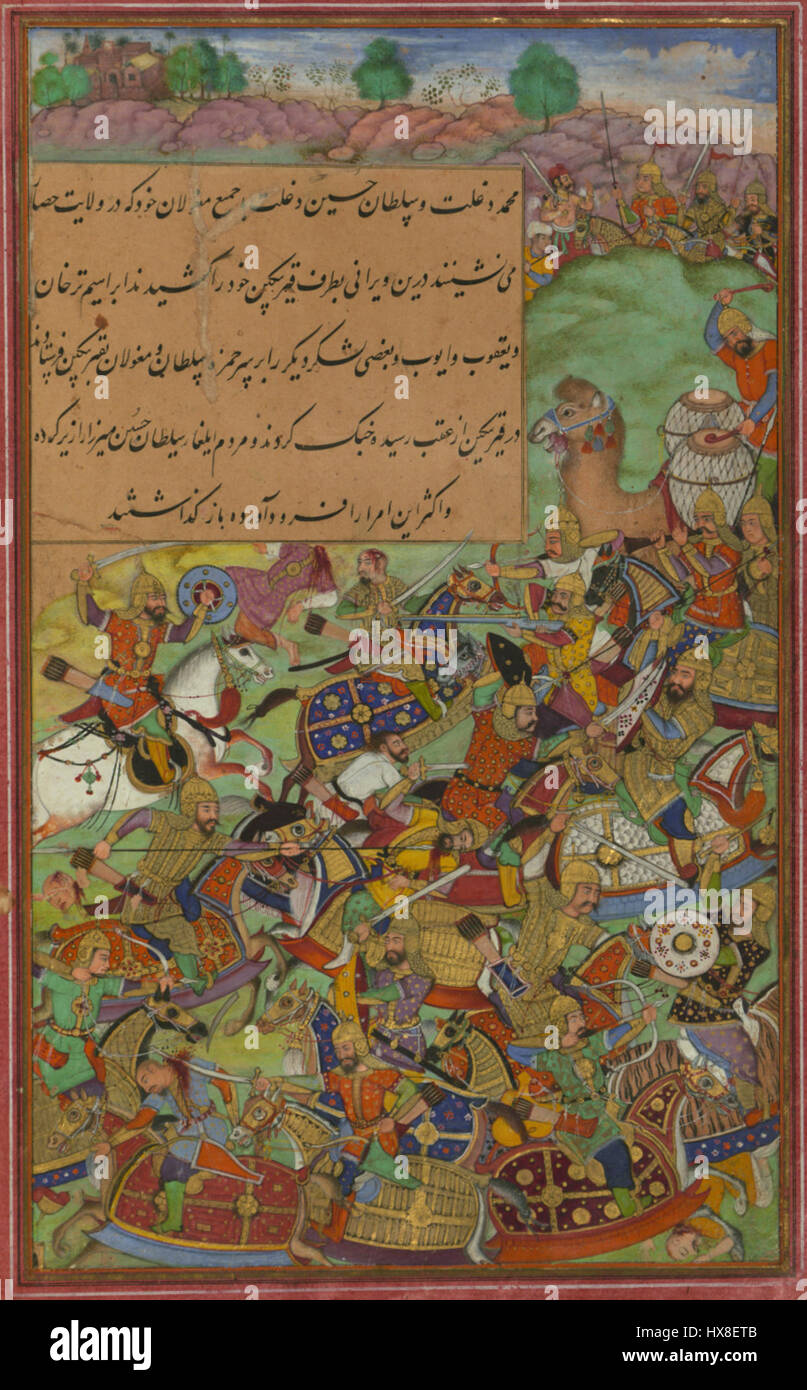 محمد دغلت و سپلطان حسین دغلت با جمع مغولان خود که در ولایت حصار
می نشینند درین ویرانی بطرف قیرتکین خود را کشیدند ابراسیم ترخان
و یعقوب و ایوب و بعضی لشکر دیکر را بر سر حمزه سپلطان و مغولان بقیرتکین فرستادند
در قیرتکین از عقب رسیده جنک کردند و مردم ایلغار سپلطان حسین میرزا را زیر کرده
و اکثر این امرا را فرود آورده باز کذاشتند
alamy stock photo
HX8ETB
www.alamy.com